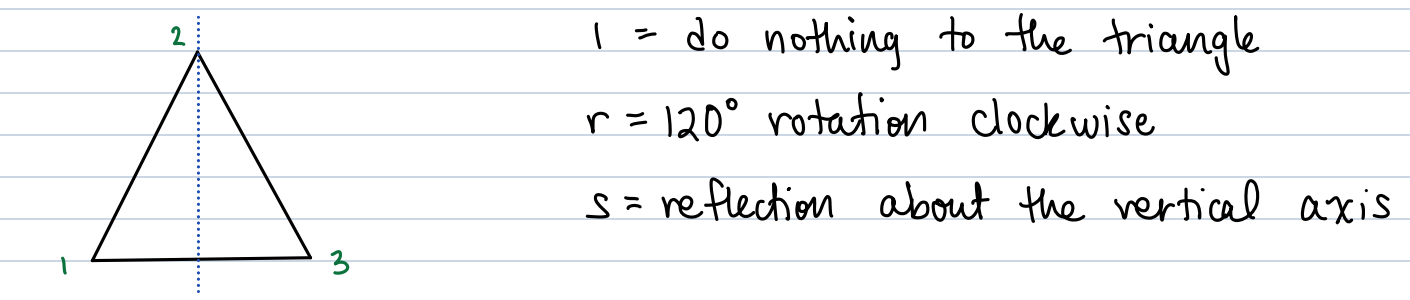 2
1 = do nothing to the triangle
r = 120° rotation clockwise
s = reflection about the vertical axis
1
3